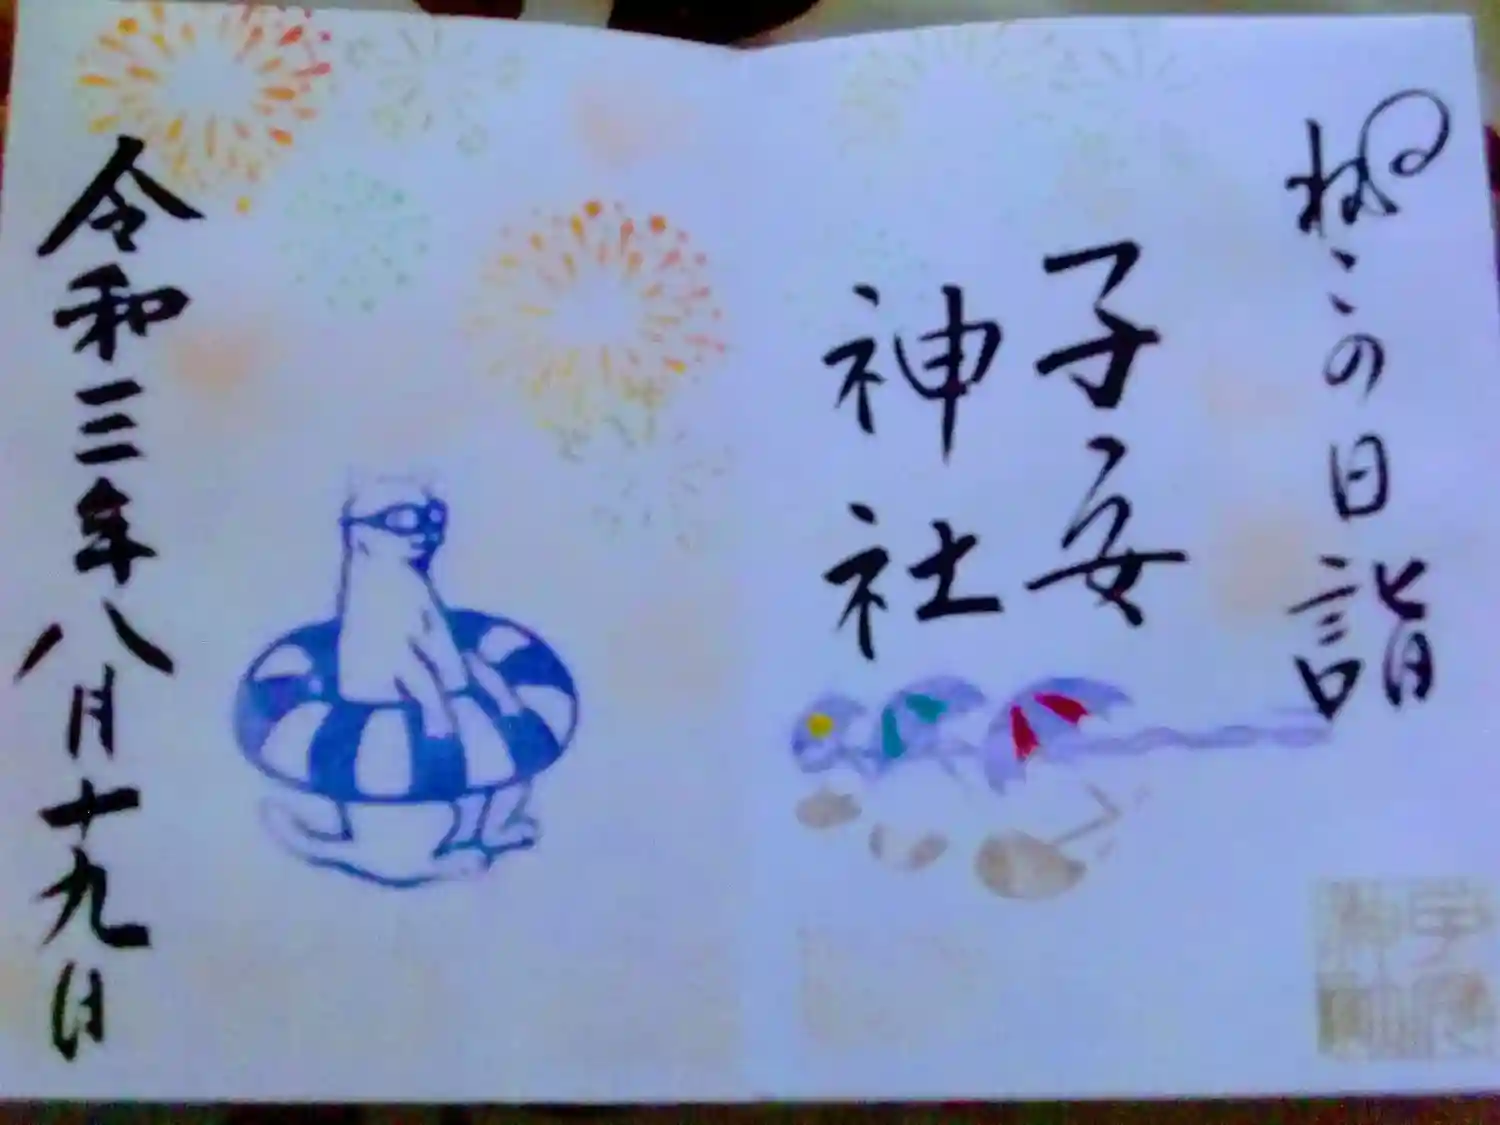 ねこの日詣
子安
神社
令和三年八月十九日